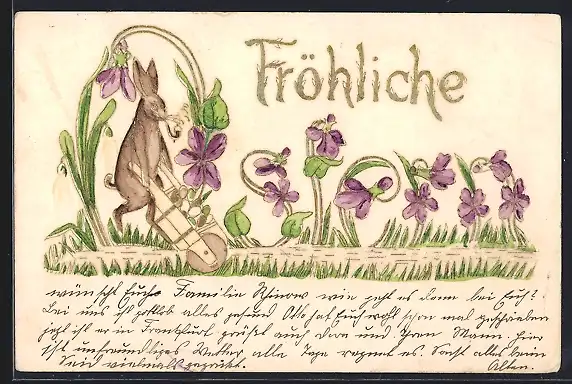 Fröhliche
Ostern
wünscht Euch Familie Rhinow wie geht es denn bei Euch?
Bei uns ist gottlob alles gesund Otto hat Euch wohl schon mal geschrieben
jetzt ist er in Frankfurt grüßt auch Dora und Ihren Mann. Hier
ist unfreundliches Wetter alle Tage regnet es. Sonst alles beim
Seid vielmals gegrüßt. Alten.